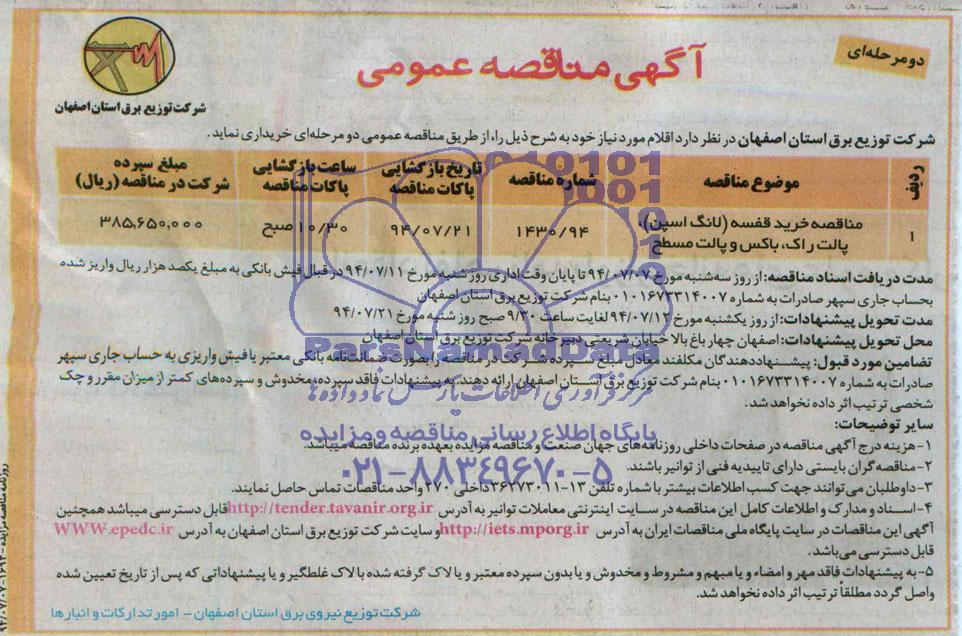 دو مرحله‌ای
آگهی مناقصه عمومی
شرکت توزیع برق استان اصفهان
شرکت توزیع برق استان اصفهان در نظر دارد اقلام مورد نیاز خود به شرح ذیل را، از طریق مناقصه عمومی دو مرحله‌ای خریداری نماید.
ردیف موضوع مناقصه شماره مناقصه تاریخ بازگشایی پاکات مناقصه ساعت بازگشایی پاکات مناقصه مبلغ سپرده شرکت در مناقصه (ریال)
۱ مناقصه خرید قفسه (لانگ اسپن)، پالت راک، باکس و پالت مسطح ۱۴۳۰/۹۴ ۹۴/۰۷/۲۱ ۱۰/۳۰ صبح ۳۸۵,۶۵۰,۰۰۰
مدت دریافت اسناد مناقصه: از روز سه‌شنبه مورخ ۹۴/۰۷/۰۷ تا پایان وقت اداری روز شنبه مورخ ۹۴/۰۷/۱۱ در قبال فیش بانکی به مبلغ یکصد هزار ریال واریز شده
بحساب جاری سپهر صادرات به شماره ۰۱۰۱۶۷۳۳۱۴۰۰۷ بنام شرکت توزیع برق استان اصفهان
مدت تحویل پیشنهادات: از روز یکشنبه مورخ ۹۴/۰۷/۱۲ لغایت ساعت ۹/۳۰ صبح روز شنبه مورخ ۹۴/۰۷/۲۱
محل تحویل پیشنهادات: اصفهان چهارباغ بالا خیابان شریعتی دبیرخانه شرکت توزیع برق استان اصفهان
تضامین مورد قبول: پیشنهاددهندگان مکلفند معادل مبلغ سپرده شرکت در مناقصه را بصورت ضمانت‌نامه بانکی معتبر یا فیش واریزی به حساب جاری سپهر
صادرات به شماره ۰۱۰۱۶۷۳۳۱۴۰۰۷ بنام شرکت توزیع برق استان اصفهان ارائه دهند. به پیشنهادات فاقد سپرده، مخدوش و سپرده‌های کمتر از میزان مقرر و چک
شخصی ترتیب اثر داده نخواهد شد.
سایر توضیحات:
۱- هزینه درج آگهی مناقصه در صفحات داخلی روزنامه‌های جهان صنعت و مناقصه مزایده بعهده برنده مناقصه میباشد.
۲- مناقصه گران بایستی دارای تاییدیه فنی از توانیر باشند.
۳- داوطلبان می‌توانند جهت کسب اطلاعات بیشتر با شماره تلفن ۱۳-۳۶۲۷۳۰۱۱ داخلی ۲۷۰ واحد مناقصات تماس حاصل نمایند.
۴- اسناد و مدارک و اطلاعات کامل این مناقصه در سایت اینترنتی معاملات توانیر به آدرس http://tender.tavanir.org.ir قابل دسترسی میباشد همچنین
آگهی این مناقصات در سایت پایگاه ملی مناقصات ایران به آدرس http://iets.mporg.ir و سایت شرکت توزیع برق استان اصفهان به آدرس WWW.epedc.ir
قابل دسترسی می‌باشد.
۵- به پیشنهادات فاقد مهر و امضاء و یا مبهم و مشروط و مخدوش و یا بدون سپرده معتبر و یا لاک گرفته شده با لاک غلطگیر و یا پیشنهاداتی که پس از تاریخ تعیین شده
واصل گردد مطلقاً ترتیب اثر داده نخواهد شد.
شرکت توزیع نیروی برق استان اصفهان - امور تدارکات و انبارها
ParsNamadData
مرکز فرآوری اطلاعات پارس نماد داده‌ها
پایگاه اطلاع رسانی مناقصه و مزایده
۰۲۱-۸۸۳۴۹۶۷۰-۵